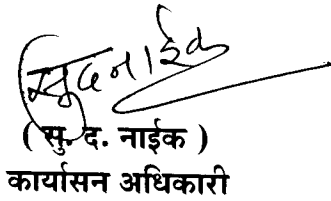 सु द नाईक
( सु. द. नाईक )
कार्यासन अधिकारी